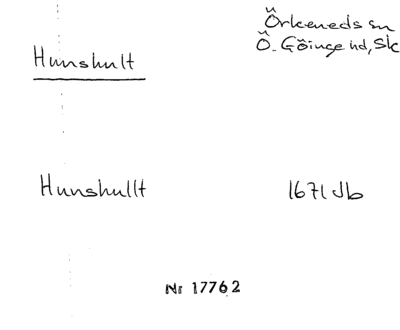 Örkeneds sn
Ö. Göinge hd, Sk
Hunshult
Hunshullt
1671 Jb
Nr 17762